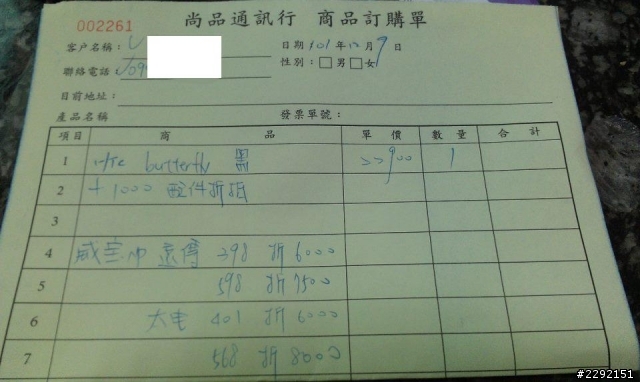 002261
尚品通訊行 商品訂購單
客戶名稱：
日期 101 年 12 月 9 日
聯絡電話：09
性別：□男□女
目前地址：
產品名稱 發票單號：
項目 商品 單價 數量 合計
1 HTC butterfly 黑 22900 1
2 +1000 配件折抵
3
4 威寶ψ 遠傳 398 折 6000
5 598 折 7500
6 太電 401 折 6000
7 568 折 8000
#2292151